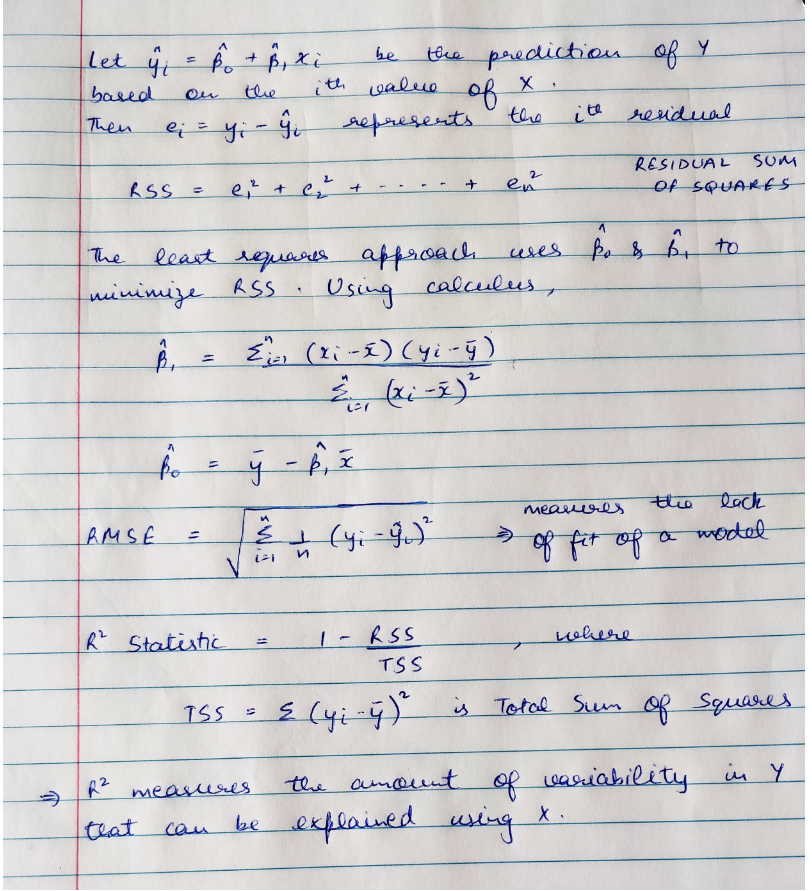 Let ŷᵢ = β̂₀ + β̂₁ xᵢ be the prediction of Y
based on the ith value of X.
Then eᵢ = yᵢ - ŷᵢ represents the ith residual
RSS = e₁² + e₂² + - - - - + eₙ² RESIDUAL SUM
OF SQUARES
The least squares approach uses β̂₀ & β̂₁ to
minimize RSS. Using calculus,
β̂₁ = Σⁿᵢ₌₁ (xᵢ - x̄)(yᵢ - ȳ)
Σⁿᵢ₌₁ (xᵢ - x̄)²
β̂₀ = ȳ - β̂₁ x̄
RMSE = √ Σⁿᵢ₌₁ 1/n (yᵢ - ŷᵢ)² ⇒ measures the lack
of fit of a model
R² Statistic = 1 - RSS/TSS, where
TSS = Σ (yᵢ - ȳ)² is Total Sum of Squares
⇒ R² measures the amount of variability in Y
that can be explained using X.